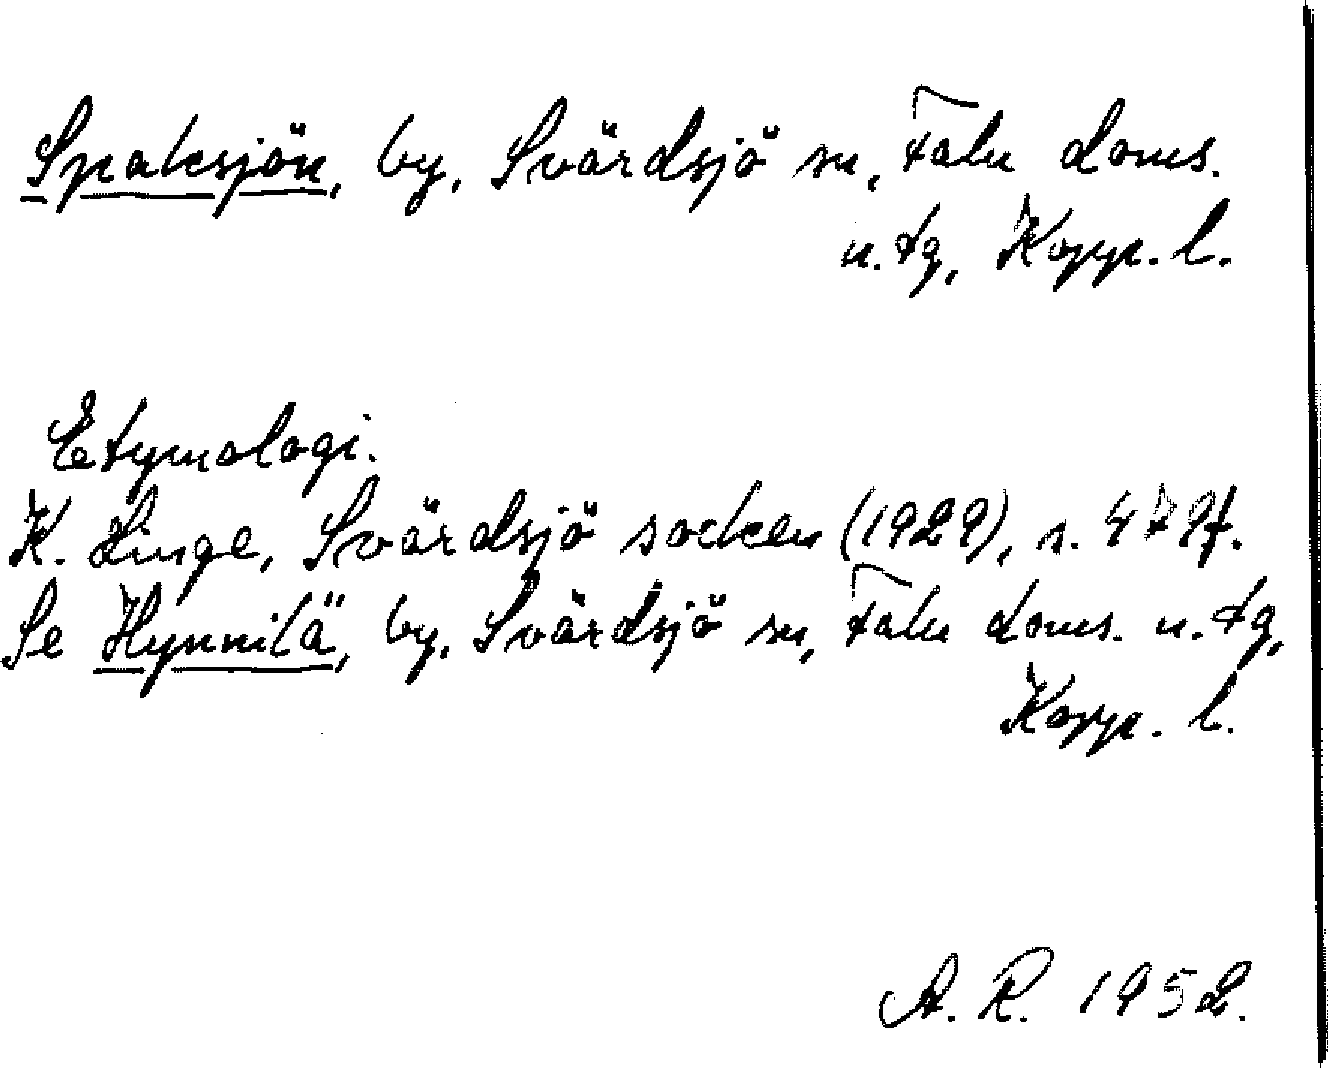 Spaksjön, by, Svärdsjö sn, Falu doms.
n. tg, Kopp. l.
Etymologi.
K. Linge, Svärdsjö socken (1929), s. 479f.
Se Hynnilä, by, Svärdsjö sn, Falu doms. n. tg,
Kopp. l.
A. R. 1952.